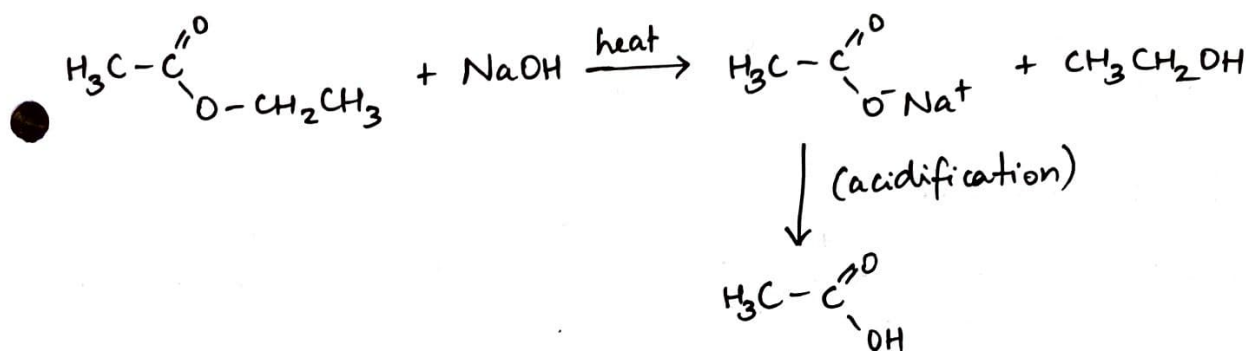 H₃C-C(=O)-O-CH₂CH₃ + NaOH heat → H₃C-C(=O)-O⁻Na⁺ + CH₃CH₂OH
↓ (acidification)
H₃C-C(=O)-OH